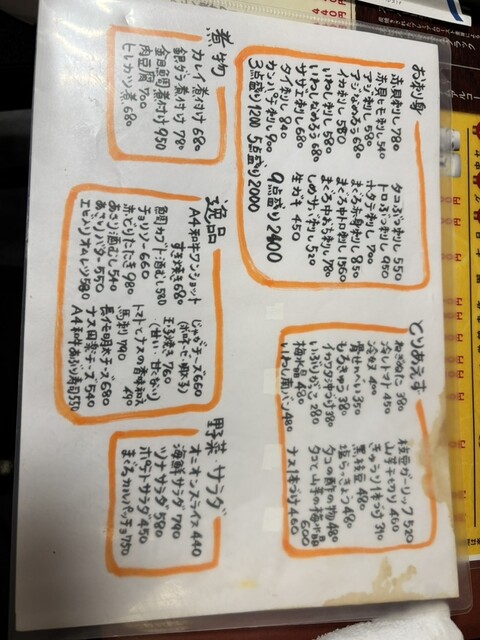 お刺身
赤貝刺し 780
赤貝ヒモ刺し 540
アジ刺し 580
アジなめろう 680
イカ刺し 580
いわし刺し 580
いわしなめろう 680
サザエ刺し 680
タイ刺し 840
カンパチ刺し 900
3点盛り1200 5点盛り2000
タコぶつ刺し 550
トロぶつ刺し 950
ホタテ刺し 700
まぐろ赤身刺し 850
まぐろ中トロ刺し 1560
まぐろ中おち刺し 780
しめサバ刺し 520
生ガキ 450
9点盛り 2400
とりあえず
ねぎぬた 380
冷しトマト 450
冷奴 400
骨せんべい 350
もろきゅう 380
イカワタ沖づけ 380
いぶりがっこ 280
梅水晶 480
いわし南バン 480
枝豆ガーリック 520
山芋千切り 460
きゅうり1本づけ 310
黒枝豆 480
塩らっきょう 480
タコの酢の物 480
タコと山芋の梅水晶
600
ナス1本づけ 460
煮物
カレイ煮付け 680
銀ダラ煮付け 780
金目鯛煮付け 950
肉豆腐 700
ヒレカツ煮 680
逸品
A4和牛ワンショット
すき焼き 680
鯛カブト酒むし 580
チョリソー 660
赤どりたたき 980
あさり酒むし 540
あさりバター 550
エビソリオムレツ 580
じゃがチーズ 660
玉子焼き 760
(甘い、甘くない)
トマトとナスの香味和え
490
馬刺 790
長任明太チーズ 680
ナス田楽チーズ 540
A4和牛あぶり寿司 550
野菜・サラダ
オニオンスライス 440
海鮮サラダ 780
ツナサラダ 580
ポテトサラダ 450
まぐろカルパッチョ 780